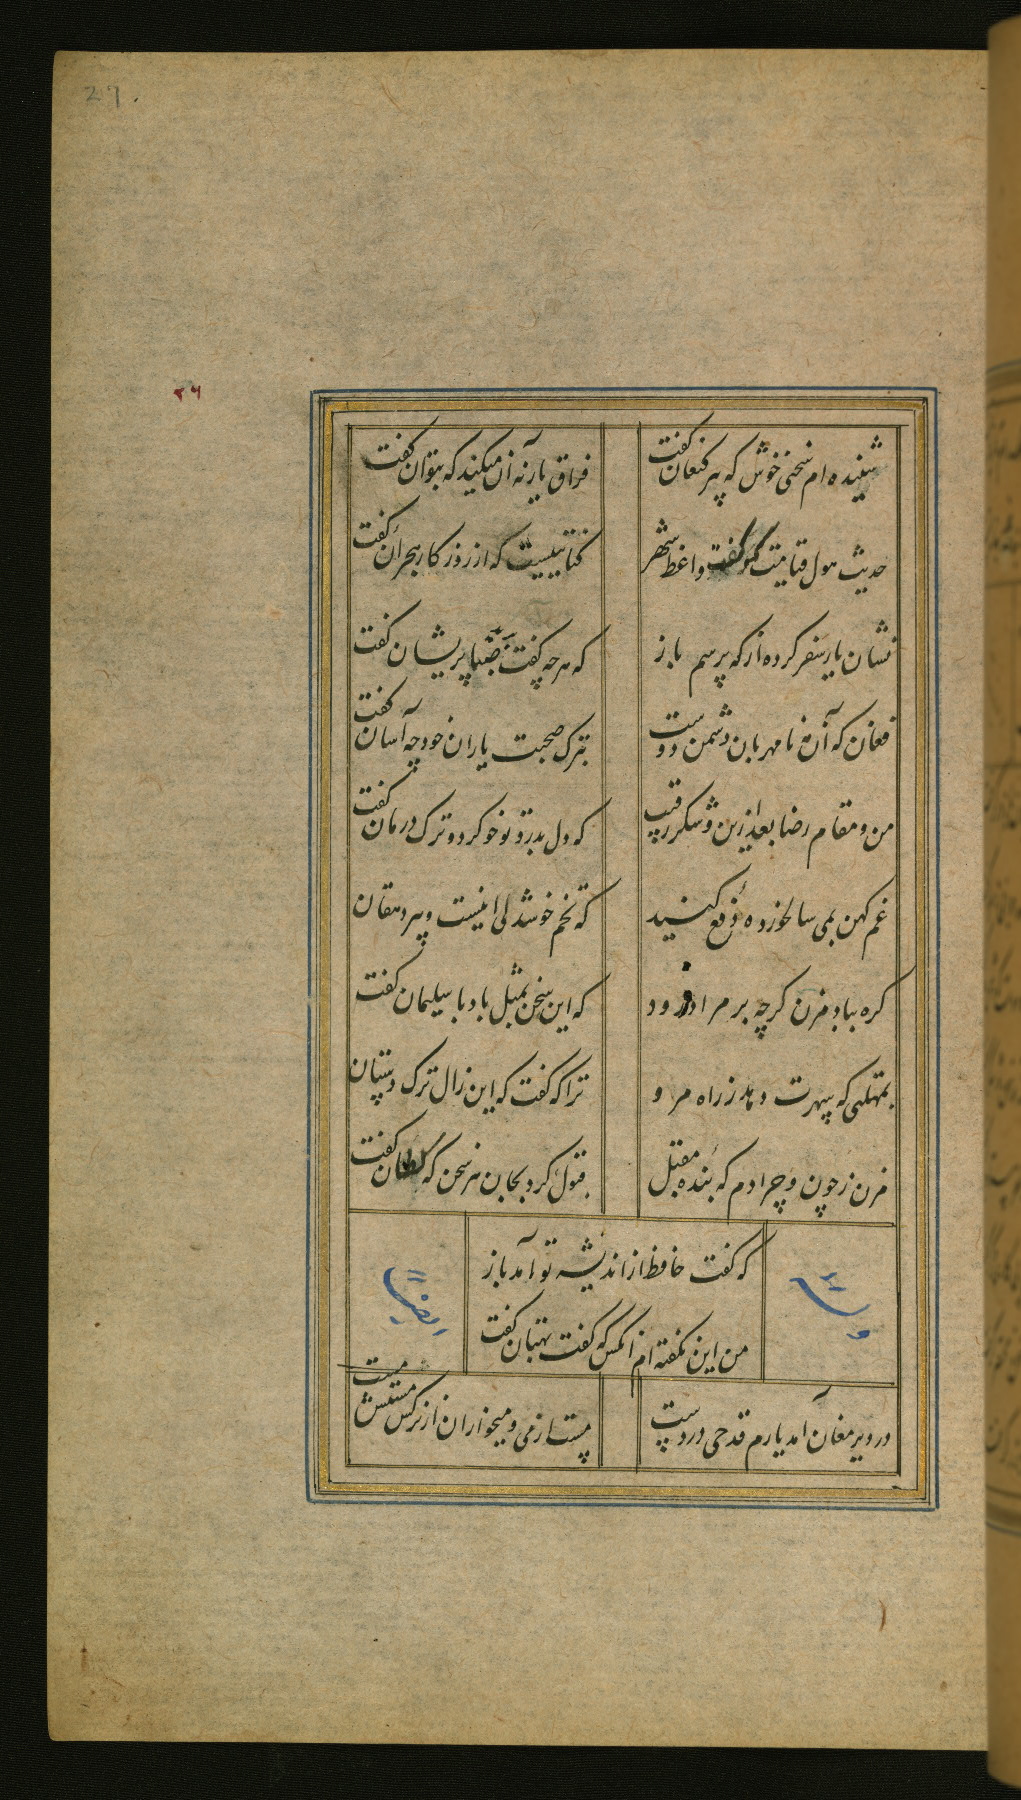 27.
۲۶
شنیده ام سخنی خوش که پیر کنعان گفت
فراق یار نه آن میکند که بتوان گفت
حدیث هول قیامت که گفت واعظ شهر
کنایتیست که از روزکار هجران گفت
نشان یار سفر کرده از که پرسم باز
که هرچه گفت صبا پریشان گفت
فغان که آن مه نا مهربان دشمن دوست
بترک صحبت یاران خود چه آسان گفت
من و مقام رضا بعد ازین و شکر رقیب
که دل بدرد تو خو کرد و ترک درمان گفت
غم کهن بمی سالخورده دفع کنید
که تخم خوشدلی اینست و پیر دهقان
کره بباد مزن کرچه بر مراد رود
که این سخن بمثل باد با سلیمان گفت
بمهلتی که سپهرت دهد ز راه مرو
ترا که گفت که این زال ترک دستان
مزن ز چون و چرا دم که بنده مقبل
قبول کرد بجان هر سخن که سلطان گفت
که گفت حافظ از اندیشه تو آمد باز
من این نکفته ام آنکس که گفت بهتان گفت
وله
ایضا
در دیر مغان آمد یارم قدحی در دست
مست از می و میخواران از نرکس مستش مست